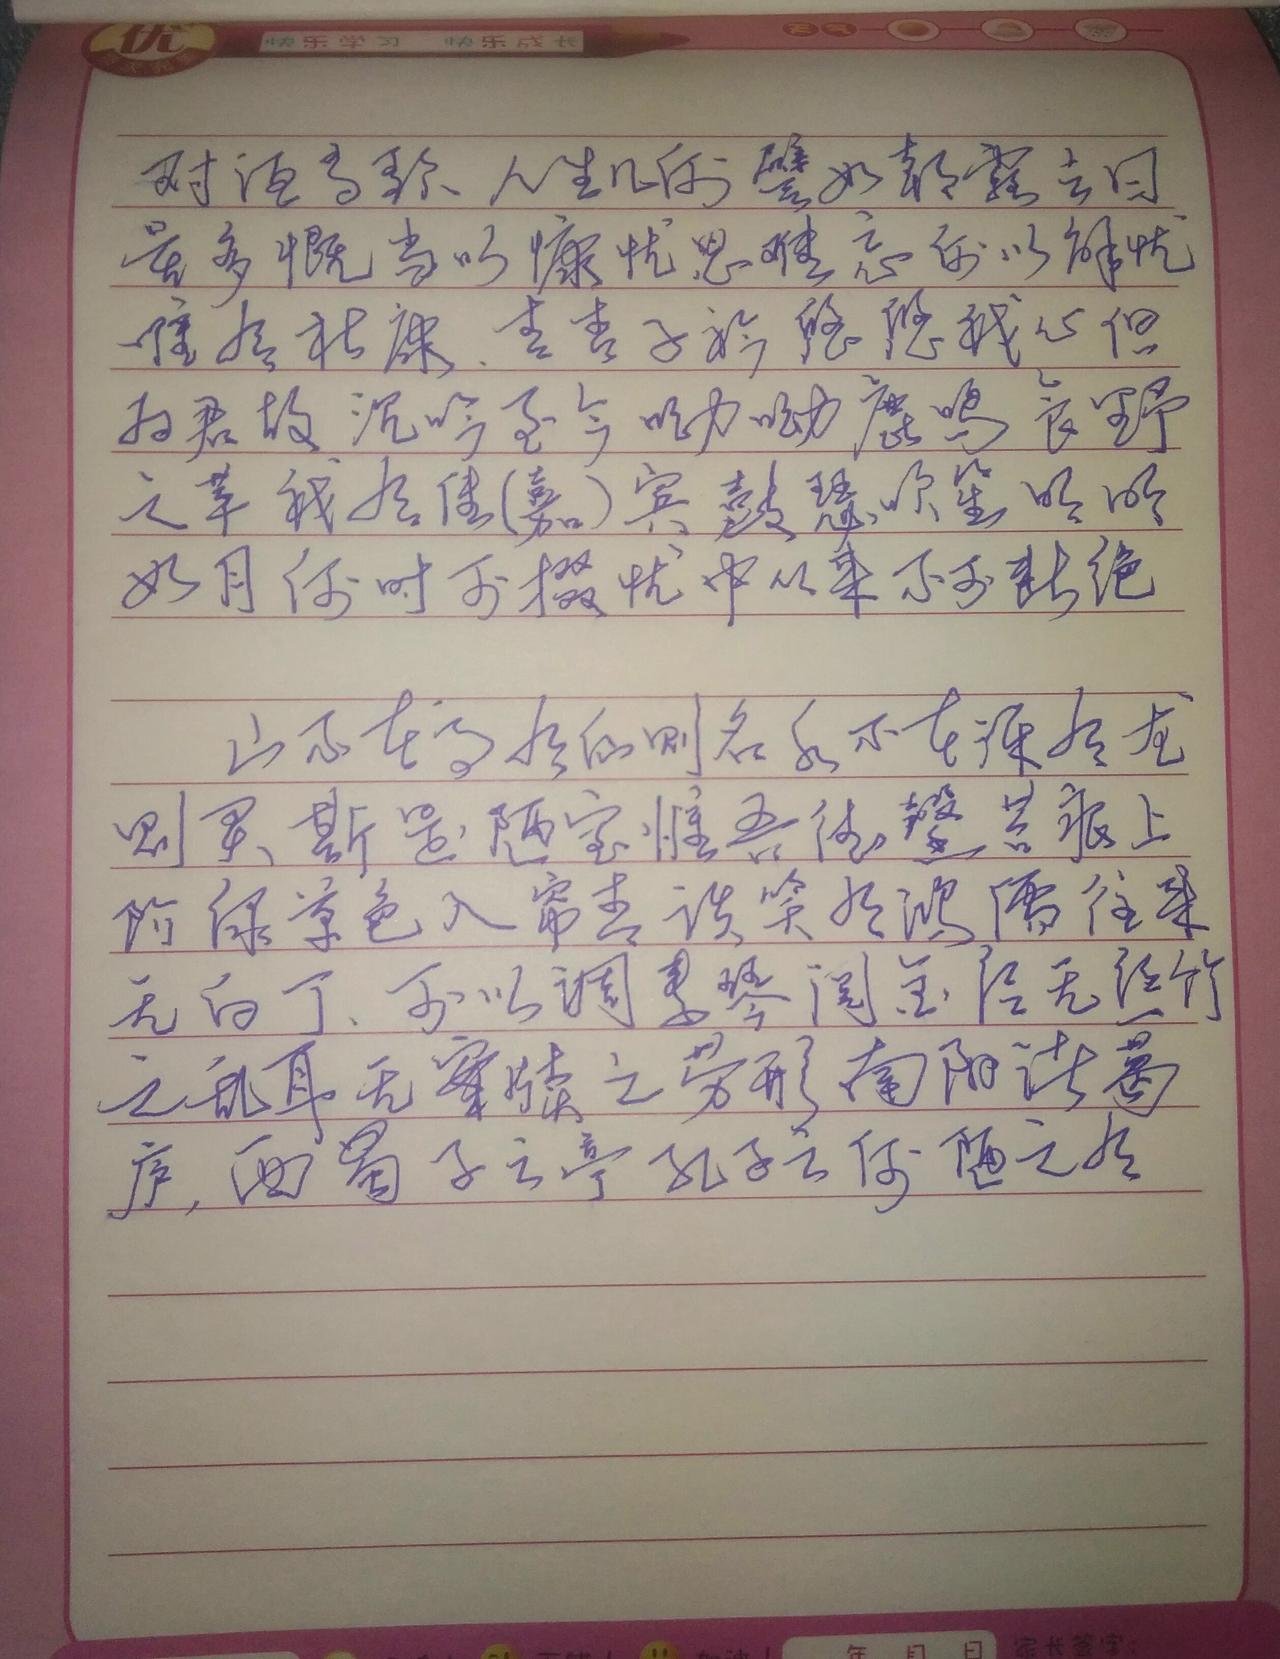 优
快乐学习 快乐成长
天气
对酒当歌、人生几何譬如朝露去日
最多慨当以慷忧思难忘何以解忧
惟有杜康、青青子衿悠悠我心但
为君故沉吟至今呦呦鹿鸣食野
之苹我有佳(嘉)宾鼓瑟吹笙明明
如月何时可掇忧中以来不可断绝
山不在高有仙则名水不在深有龙
则灵、斯是陋室惟吾德馨苔痕上
阶绿草色入帘青谈笑有鸿儒往来
无白丁、可以调素琴阅金经无丝竹
之乱耳无案牍之劳形南阳诸葛
庐,西蜀子云亭孔子云何陋之有
年 月 日 家长签字: